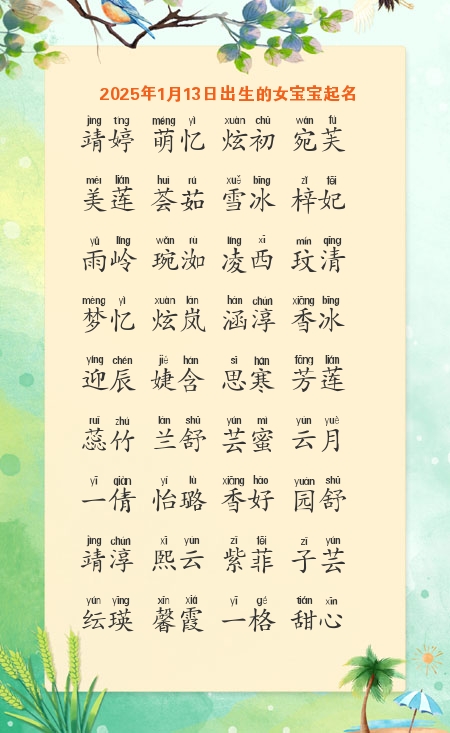 2025年1月13日出生的女宝宝起名
jìng tíng méng yì xuàn chū wǎn fú
靖婷 萌忆 炫初 宛芙
měi lián huì rú xuě bīng zǐ fēi
美莲 荟茹 雪冰 梓妃
yǔ lǐng wǎn rù líng xī mín qīng
雨岭 琬洳 凌西 玟清
mèng yì xuàn lán hán chún xiāng bīng
梦忆 炫岚 涵淳 香冰
yíng chén jié hán sī hán fāng lián
迎辰 婕含 思寒 芳莲
ruǐ zhú lán shū yún mì yún yuè
蕊竹 兰舒 芸蜜 云月
yī qiàn yí lù xiāng hǎo yuán shū
一倩 怡璐 香好 园舒
jìng chún xī yún zǐ fēi zǐ yún
靖淳 熙云 紫菲 子芸
yún yīng xīn xiá yī gé tián xīn
纭瑛 馨霞 一格 甜心